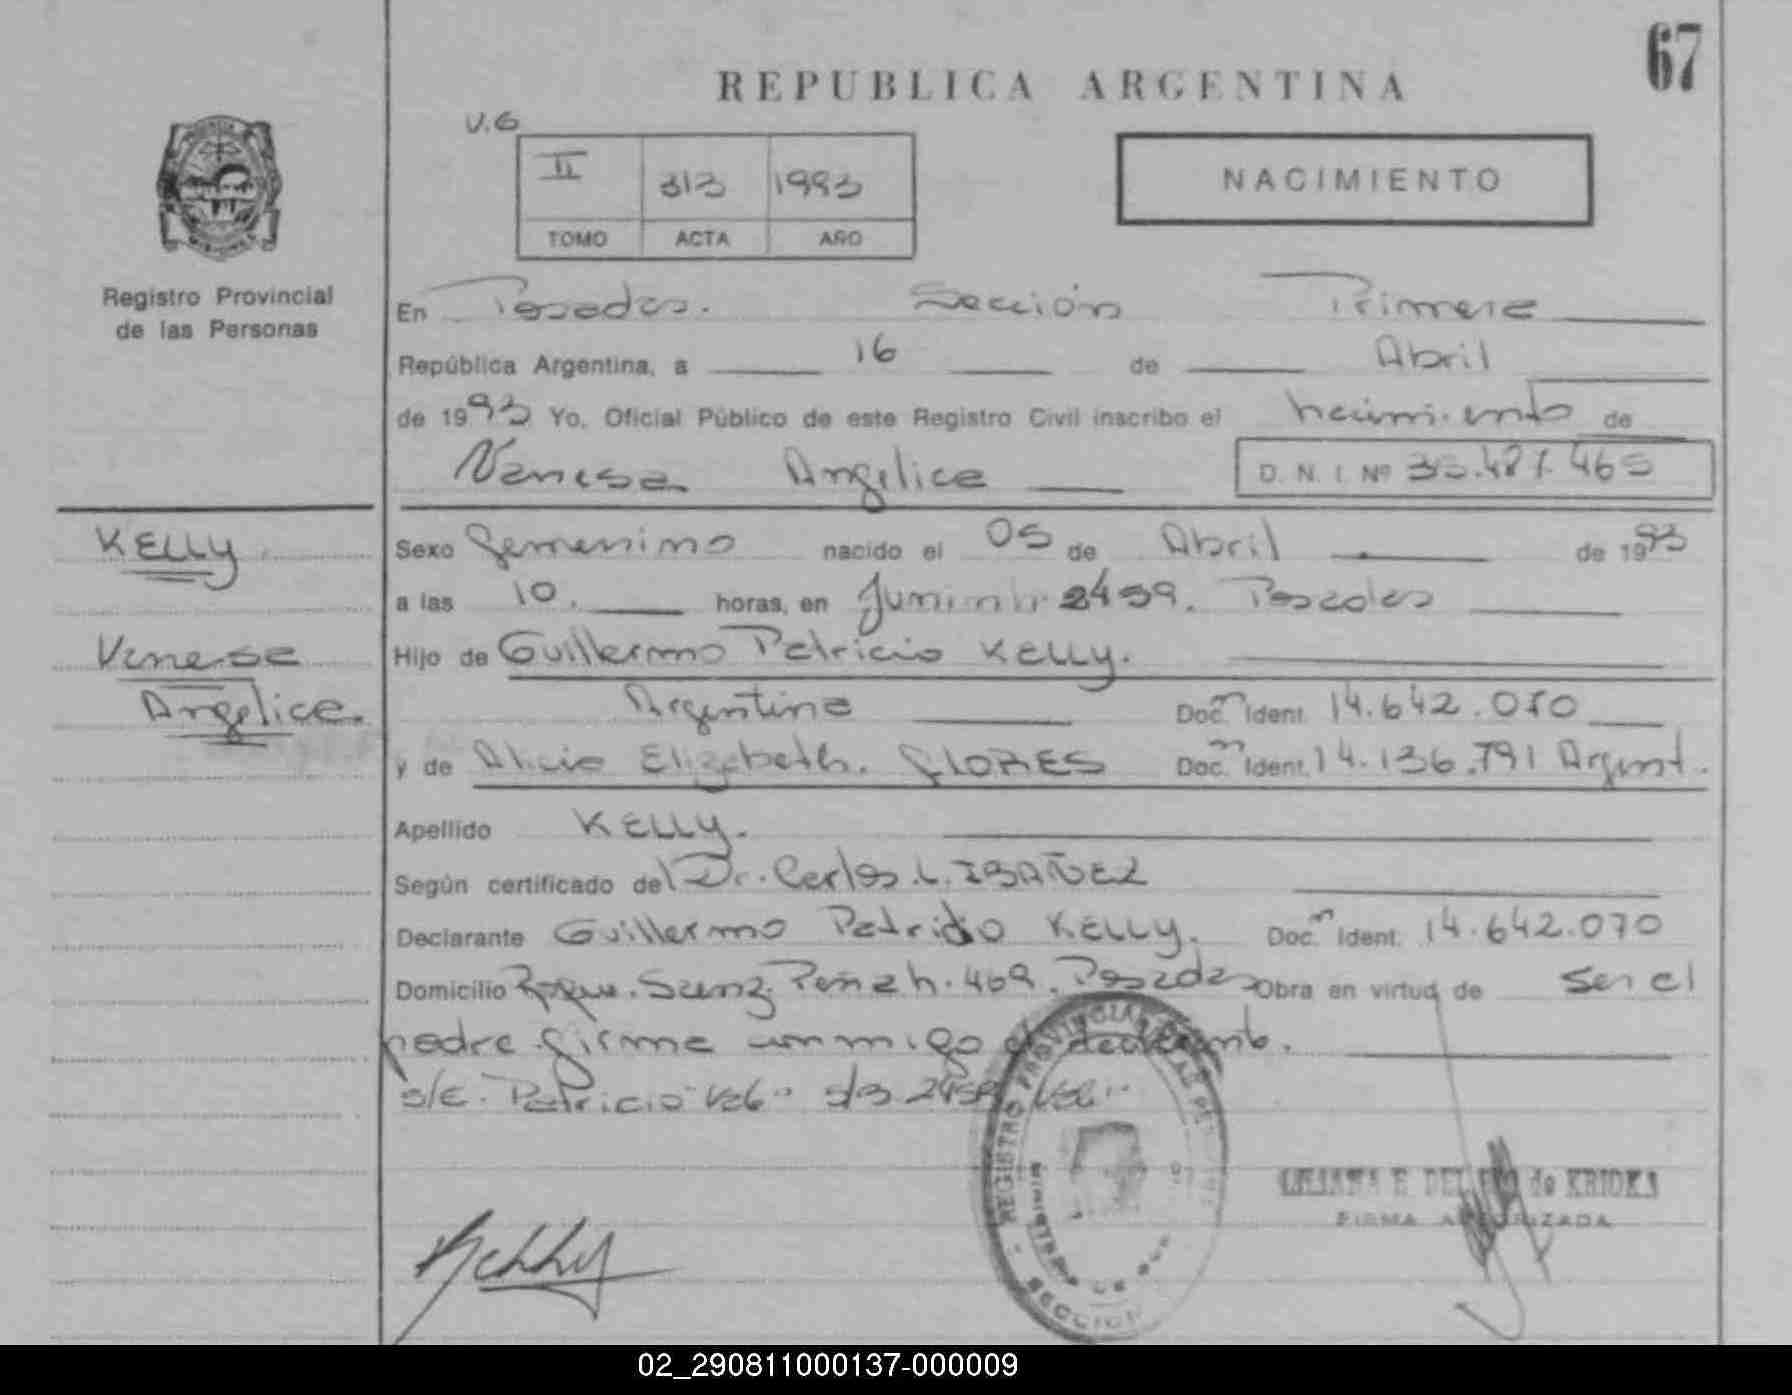 67
REPUBLICA ARGENTINA
V.G
II 313 1993
TOMO ACTA AÑO
NACIMIENTO
Registro Provincial
de las Personas
En Posadas. Sección Primera
República Argentina, a 16 de Abril
de 1993 Yo, Oficial Público de este Registro Civil inscribo el nacimiento de
Vanesa Angelica D. N. I. Nº
KELLY
Vanesa
Angelica.
Sexo Femenino nacido el 05 de Abril de 1993
a las 10. horas, en Junin 2459. Posadas
Hijo de Guillermo Patricio KELLY.
Argentino Doc. Ident. 14.642.070
y de Alicia Elizabeth. FLORES Doc. Ident. 14.136.791 Argent.
Apellido KELLY.
Según certificado del Dr. Carlos. L. IBAÑEZ
Declarante Guillermo Patricio KELLY. Doc. Ident. 14.642.070
Domicilio Roque. Saenz Peña 469. Posadas Obra en virtud de ser el
padre firma conmigo el declarante.
s/e. Patricio Vale s/b 2459 Vale
Kelly
REGISTRO PROVINCIAL DE LAS PERSONAS
SECCION
de KRIOKA
FIRMA AUTORIZADA
02_290811000137-000009